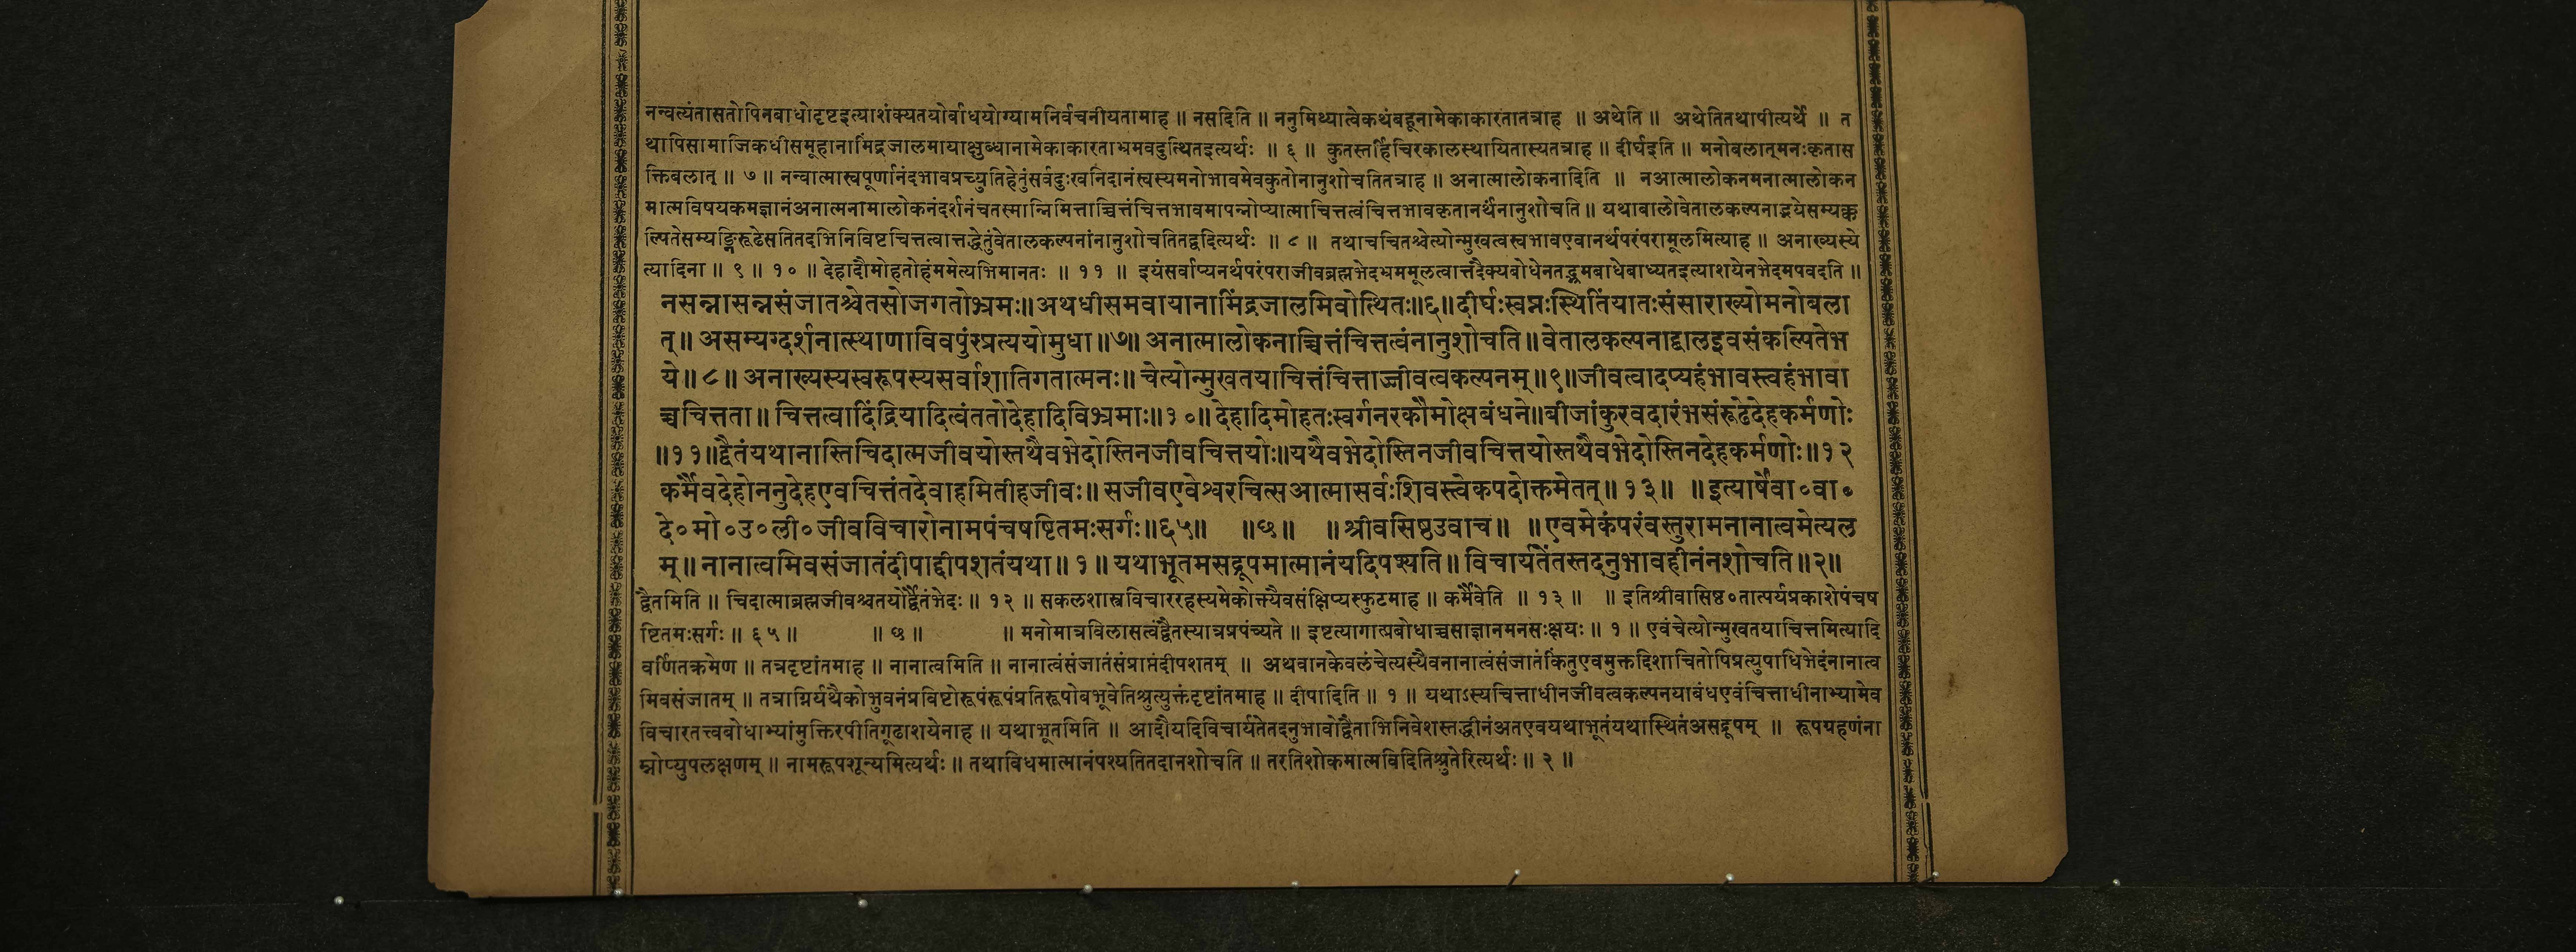 नन्वत्यंतासतोपिनबाधोदृष्टइत्याशंक्यतयोर्बाधयोग्यामनिर्वचनीयतामाह ॥ नसदिति ॥ ननुमिथ्यात्वेकथंबहूनामेकाकारतातत्राह ॥ अथेति ॥ अथेतितथापीत्यर्थे ॥ त
थापिसामाजिकधीसमूहानामिंद्रजालमायाक्षुब्धानामेकाकारताभ्रमवदुत्थितइत्यर्थः ॥ ६ ॥ कुतस्तर्हिचिरकालस्थायितास्यतत्राह ॥ दीर्घइति ॥ मनोबलात्मनःकृतास
क्तिबलात् ॥ ७ ॥ नन्वात्मास्वपूर्णानंदभावप्रच्युतिहेतुंसर्वदुःखनिदानंस्वस्यमनोभावमेवकुतोनानुशोचतितत्राह ॥ अनात्मालोकनादिति ॥ नआत्मालोकनमनात्मालोकन
मात्मविषयकमज्ञानंअनात्मनामालोकनंदर्शनंचतस्मान्निमित्ताच्चित्तंचित्तभावमापन्नोप्यात्माचित्तत्वंचित्तभावकृतानर्थंनानुशोचति ॥ यथाबालोवेतालकल्पनाद्भयेसम्यक्क
ल्पितेसम्यङ्निरूढेसतितदभिनिविष्टचित्तत्वात्तद्धेतुंवेतालकल्पनांनानुशोचतितद्वदित्यर्थः ॥ ८ ॥ तथाचचितश्चेत्योन्मुखत्वस्वभावएवानर्थपरंपरामूलमित्याह ॥ अनाख्यस्ये
त्यादिना ॥ ९ ॥ १० ॥ देहादौमोहतोहंममेत्यभिमानतः ॥ ११ ॥ इयंसर्वाप्यनर्थपरंपराजीवब्रह्मभेदभ्रममूलत्वात्तदैक्यबोधेनतद्भ्रमबाधेबाध्यतइत्याशयेनभेदमपवदति ॥
नसन्नासन्नसंजातश्चेतसोजगतोभ्रमः॥अथधीसमवायानामिंद्रजालमिवोत्थितः॥६॥दीर्घःस्वप्नःस्थितिंयातःसंसाराख्योमनोबला
त्॥ असम्यग्दर्शनात्स्थाणाविवपुंस्प्रत्ययोमुधा॥७॥ अनात्मालोकनाच्चित्तंचित्तत्वंनानुशोचति॥वेतालकल्पनाद्बालइवसंकल्पितेभ
ये॥८॥ अनाख्यस्यस्वरूपस्यसर्वाशातिगतात्मनः॥ चेत्योन्मुखतयाचित्तंचित्ताज्जीवत्वकल्पनम्॥९॥जीवत्वादप्यहंभावस्त्वहंभावा
च्चचित्तता॥ चित्तत्वादिंद्रियादित्वंततोदेहादिविभ्रमाः॥१०॥ देहादिमोहतःस्वर्गनरकौमोक्षबंधने॥बीजांकुरवदारंभसंरूढेदेहकर्मणोः
॥११॥द्वैतंयथानास्तिचिदात्मजीवयोस्तथैवभेदोस्तिनजीवचित्तयोः॥यथैवभेदोस्तिनजीवचित्तयोस्तथैवभेदोस्तिनदेहकर्मणोः॥१२
कर्मैवदेहोननुदेहएवचित्तंतदेवाहमितीहजीवः॥ सजीवएवेश्वरचित्सआत्मासर्वःशिवस्त्वेकपदोक्तमेतत्॥१३॥ ॥इत्यार्षेवा०वा०
दे०मो०उ०ली०जीवविचारोनामपंचषष्टितमःसर्गः॥६५॥ ॥छ॥ ॥श्रीवसिष्ठउवाच॥ ॥एवमेकंपरंवस्तुरामनानात्वमेत्यल
म्॥नानात्वमिवसंजातंदीपाद्दीपशतंयथा॥१॥ यथाभूतमसद्रूपमात्मानंयदिपश्यति॥ विचार्यतेंतस्तदनुभावहीनंनशोचति॥२॥
द्वैतमिति ॥ चिदात्माब्रह्मजीवश्चतयोर्द्वैतंभेदः ॥ १२ ॥ सकलशास्त्रविचाररहस्यमेकोक्त्यैवसंक्षिप्यस्फुटमाह ॥ कर्मैवेति ॥ १३ ॥ ॥ इतिश्रीवासिष्ठ०तात्पर्यप्रकाशेपंचष
ष्टितमःसर्गः ॥ ६५ ॥ ॥ छ ॥ ॥ मनोमात्रविलासत्वंद्वैतस्यात्रप्रपंच्यते ॥ इष्टत्यागात्प्रबोधाच्चसाज्ञानमनसःक्षयः ॥ १ ॥ एवंचेत्योन्मुखतयाचित्तमित्यादि
वर्णितक्रमेण ॥ तत्रदृष्टांतमाह ॥ नानात्वमिति ॥ नानात्वंसंजातंसंप्राप्तंदीपशतम् ॥ अथवानकेवलंचेत्यस्यैवनानात्वंसंजातंकिंतुएवमुक्तदिशाचितोपिप्रत्युपाधिभेदंनानात्व
मिवसंजातम् ॥ तत्राग्निर्यथैकोभुवनंप्रविष्टोरूपंरूपंप्रतिरूपोबभूवेतिश्रुत्युक्तंदृष्टांतमाह ॥ दीपादिति ॥ १ ॥ यथाऽस्यचित्ताधीनजीवत्वकल्पनयाबंधएवंचित्ताधीनाभ्यामेव
विचारतत्त्वबोधाभ्यांमुक्तिरपीतिगूढाशयेनाह ॥ यथाभूतमिति ॥ आदौयदिविचार्यतेतदनुभावोद्वैताभिनिवेशस्तद्धीनंअतएवयथाभूतंयथास्थितंअसद्रूपम् ॥ रूपग्रहणंना
म्नोप्युपलक्षणम् ॥ नामरूपशून्यमित्यर्थः ॥ तथाविधमात्मानंपश्यतितदानशोचति ॥ तरतिशोकमात्मविदितिश्रुतेरित्यर्थः ॥ २ ॥